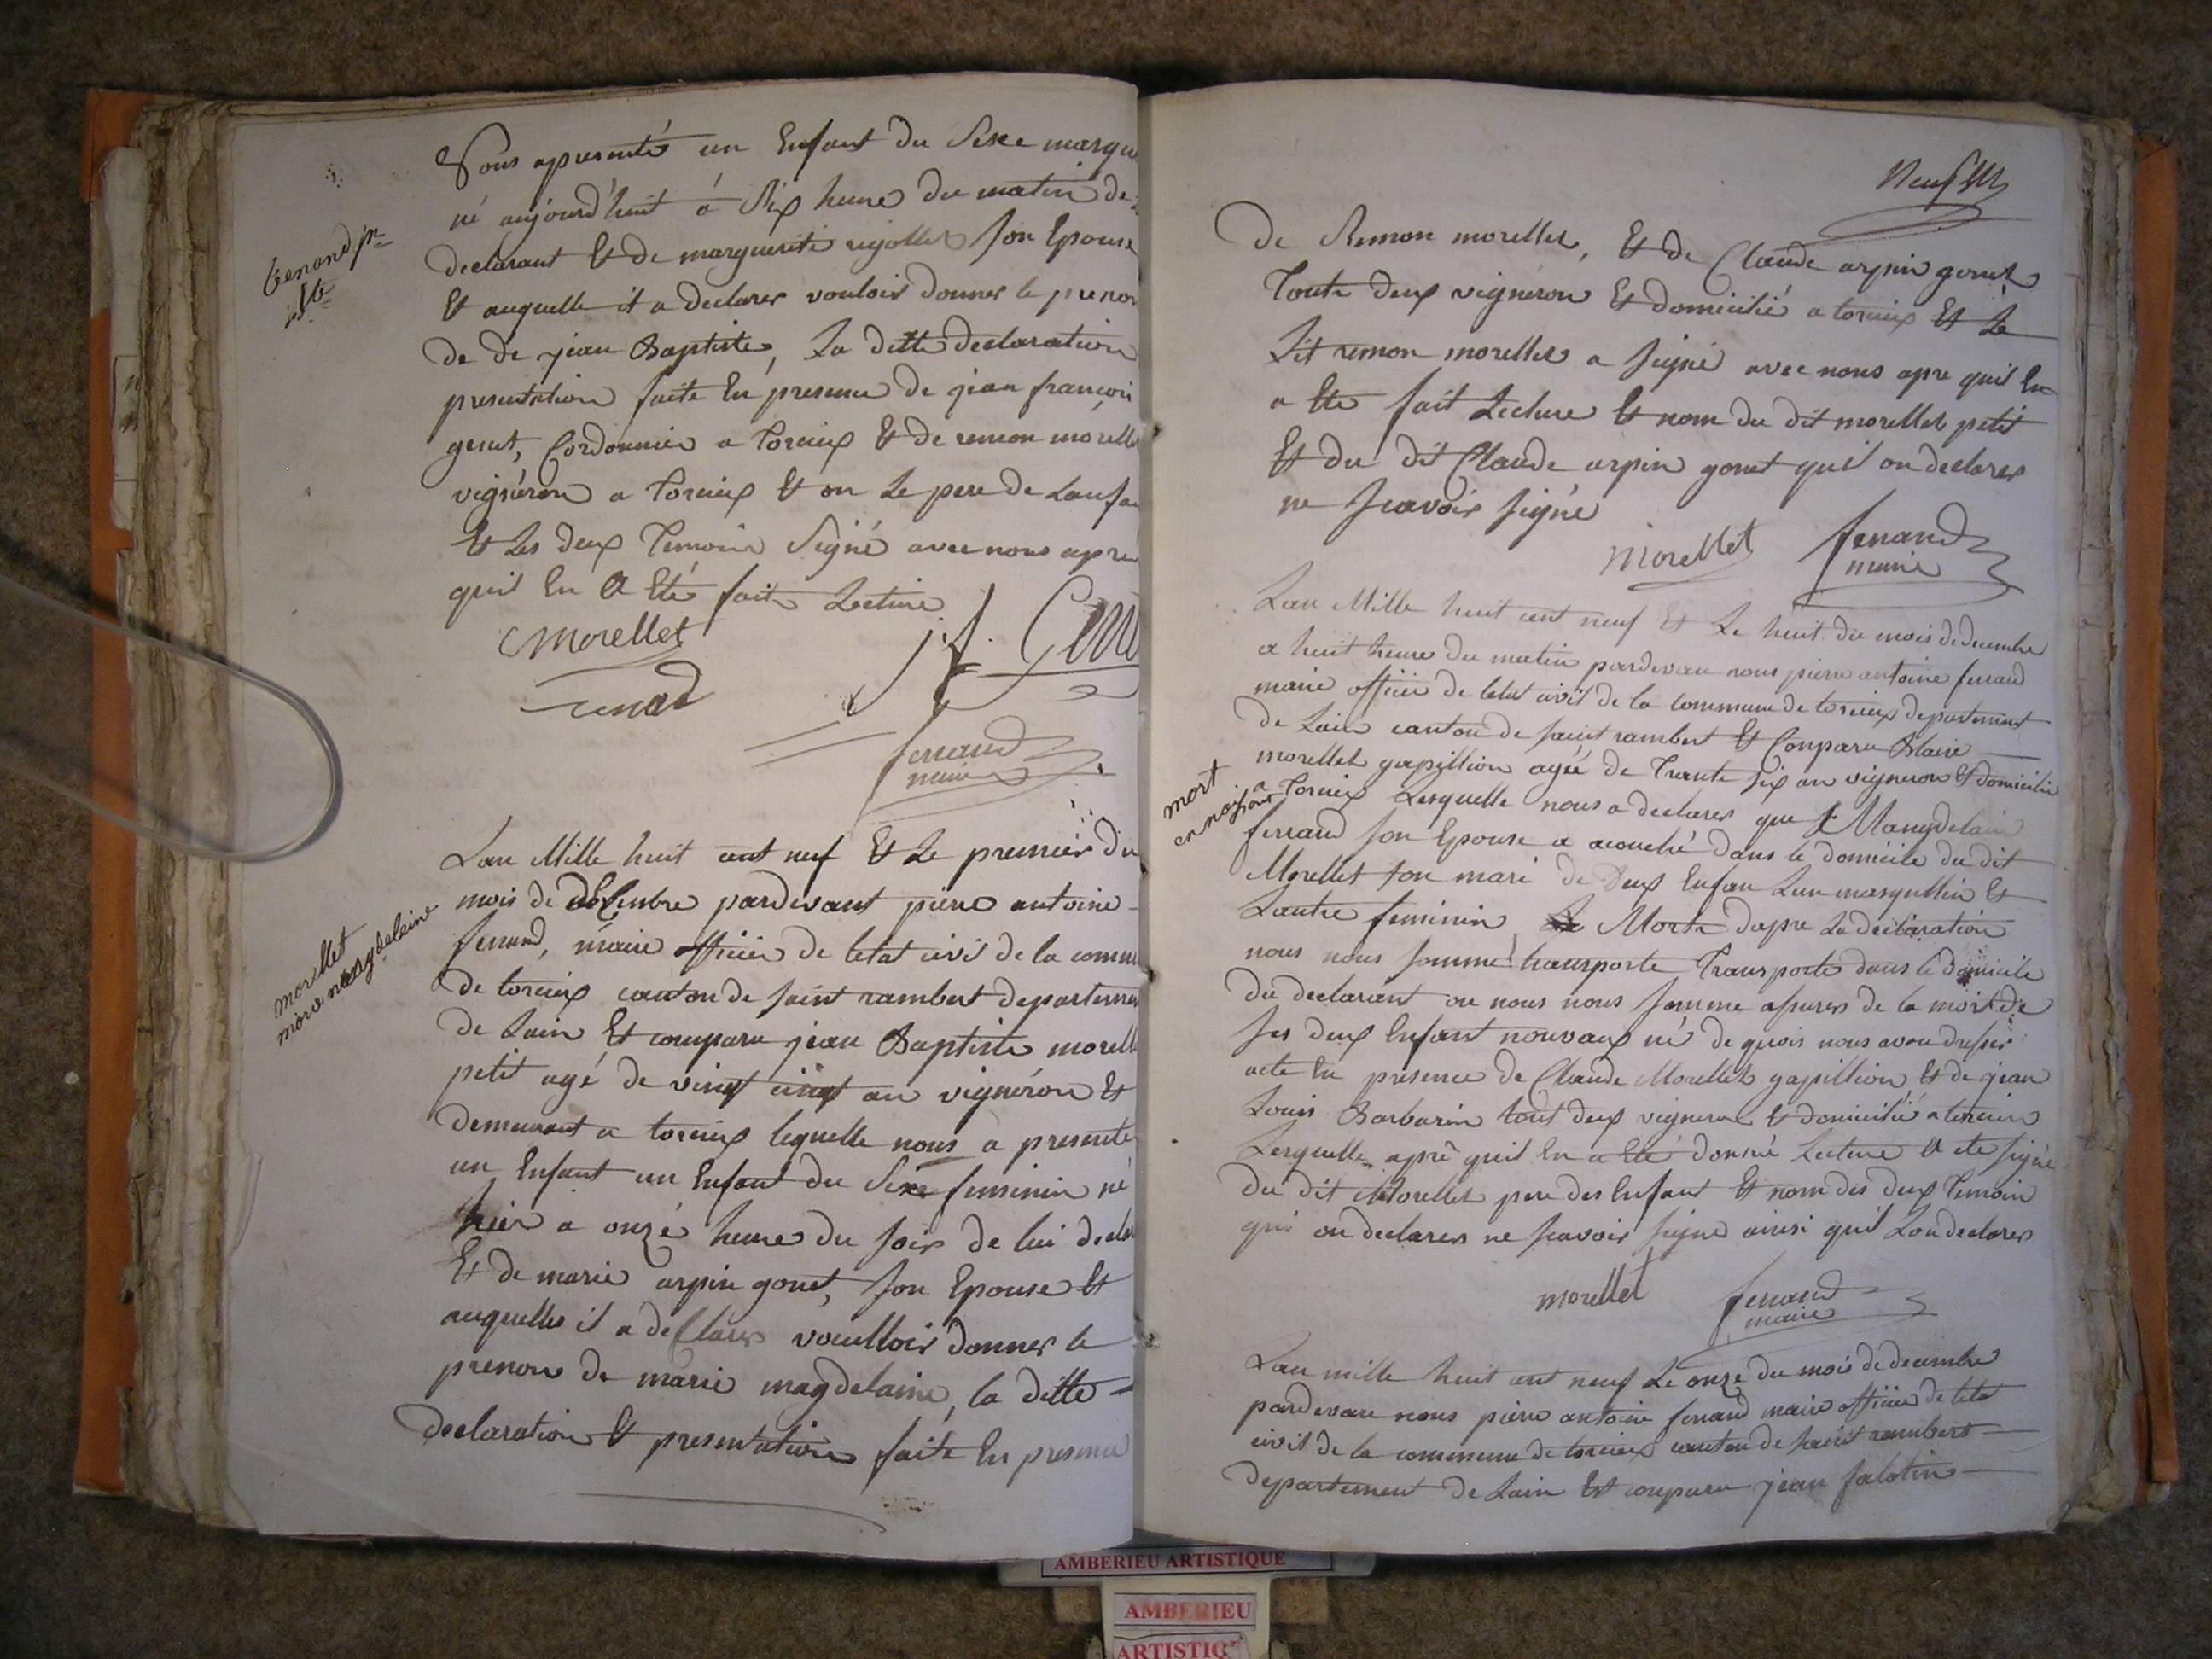 Nous apresenté un Enfant du Sexe masqu
né aujourd'huit á Six heure du matin de
declarant Et de marguerite rigollet Son Epouse
Et auquelle il a declarer vouloir donner le prenon
de de jean Baptiste, La ditte declaration
presentation faite En presence de jean francoi
genet, Cordonnier a Torcieux Et de remon morelle
vignéron a Torcieux Et on Le pere de Lanfa
Et Les deux Temoin Signé avec nous apre
quil En A Eté fait Lecture
Morellet
J. f. Gene
tenand
ferrand
maire
tenand jn
bte
Lan Mille huit cent neuf Et Le premier du
mois de dEcembre pardevant pierre antoine
ferrand, maire officier de letat civil de la comm
de torcieux canton de Saint rambert departemen
de Lain Et comparu jean Baptiste morell
petit agé de vingt cinq an vignéron Et
demeurant a torcieux lequelle nous a presenter
un Enfant un Enfant du Sexe feminin né
hier a onze heure du Soir de lui decla
Et de marie arpin gonet, Son Epouse Et
auquelles il a deClarer voulloir donner le
prenon de marie magdelaine, la ditte
declaration Et presentation faite En presence
morellet
marie magdeleine
Neuf
de Remon morellet, Et de Claude arpin gonet
Toute deux vignéron Et domicilié a torcieux Et Le
Dit remon morellet a Signé avec nous apre quil En
a Ete fait Lecture Et nom du dit morellet petit
Et du dit Claude arpin gonet qui on declarer
ne Scavoir Signé
Morellet
ferrand
maire
Lan Mille huit cent neuf Et Le huit du mois de decembre
a huit heure du matin pardevan nous pierre antoine ferrand
maire officier de letat civil de la commune de torcieux departement
de Lain canton de Saint rambert Et Conparu Blaise
morellet gapillion agée de Trente Six an vigneron Et domicilie
a Torcieux Lesquelle nous a declarer que Mangdelain
ferrand Son Epouse a acouché dans le domicile du dit
Morellet Son mari de Deux Enfan Lun masqullin Et
Lautre feminin Morte dapre La declaration
nous nous Somme transporte Transporte dans le domicile
du declarant ou nous nous Somme asurer de la mort de
Ses deux Enfant nouvaux né de quois nous avon dresser
acte En presence de Claude Morellet gapillion Et de jean
Louis Barbarin tout deux vigneron Et domicilié a torcieux
Lesquelle aprê quil En a Eté donné Lecture A ete Signé
du dit Morellet pere des Enfant Et nom des deux Temoin
qui on declarer ne Scavoir Signé ainsi quil Lon declarer
morellet
ferrand
maire
mort
en naissant
Lan mille huit cent neuf Le onze du mois de decembre
pardevan nous pierre antoine ferrand maire officier de letat
civil de la commune de torcieux canton de Saint rambert
departement de Lain Est conparu jean falotin
AMBERIEU ARTISTIQUE
AMBERIEU
ARTISTIQ